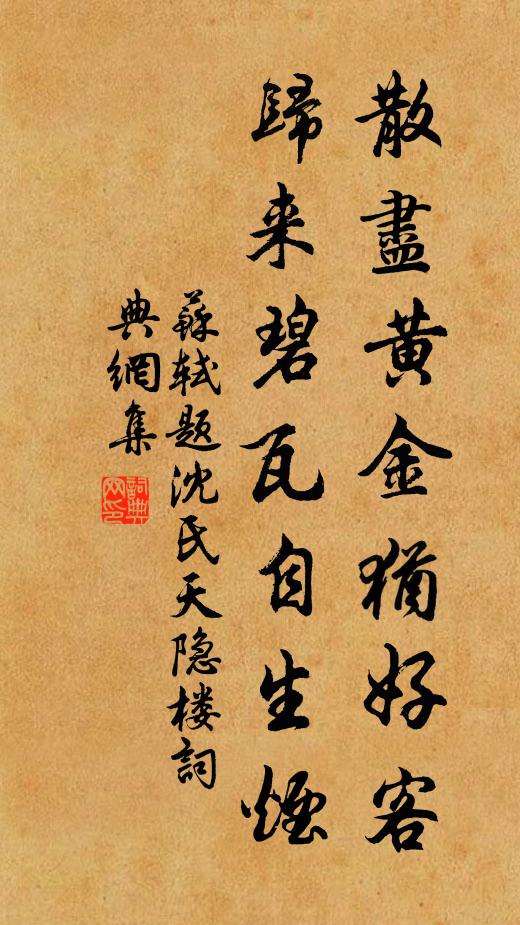 散盡黄金猶好客
歸来碧瓦自生煙
蘇軾題沈氏天隐楼詞
典網集
詞典网印